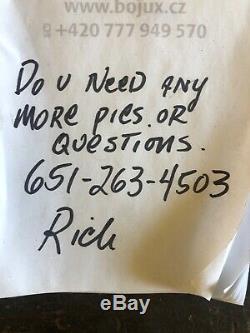 www.bojux.cz
+420 777 949 570
Do u NEED ANY
MORE PICS. OR
QUESTIONS.
651-263-4503
Rich